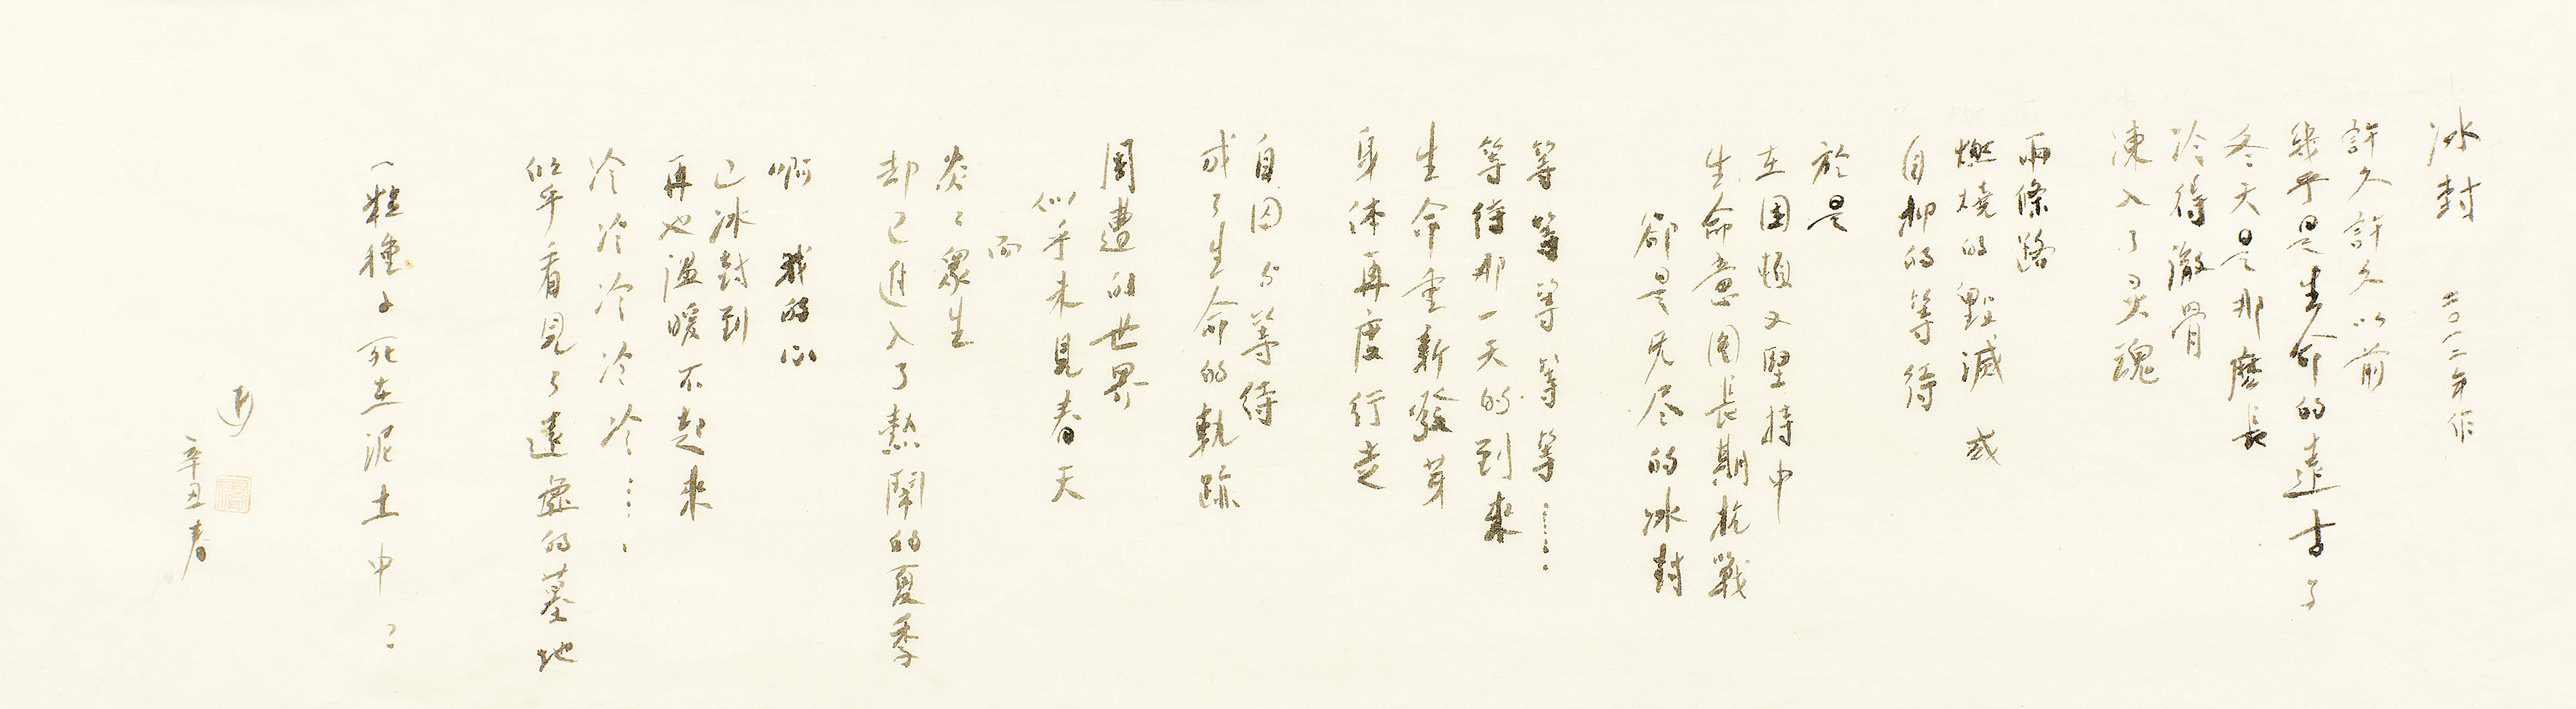 冰封 二〇一二年作
許久許久以前
幾乎是生命的遠古了
冬天是那麼長
冷得徹骨
凍入了灵魂
兩條路
燃燒的毀滅 或
自抑的等待
於是
在困頓又堅持中
生命意图長期抗戰
卻是无尽的冰封
等等等等等……
等待那一天的到來
生命重新發芽
身体再度行走
自囚与等待
成了生命的軌跡
周遭的世界
似乎未見春天
而
炎々眾生
却已進入了熱鬧的夏季
啊 我的心
已冰封到
再也溫暖不起來
冷冷冷冷冷……
似乎看見了遠處的墓地
一粒種子死在泥土中？
辛丑春